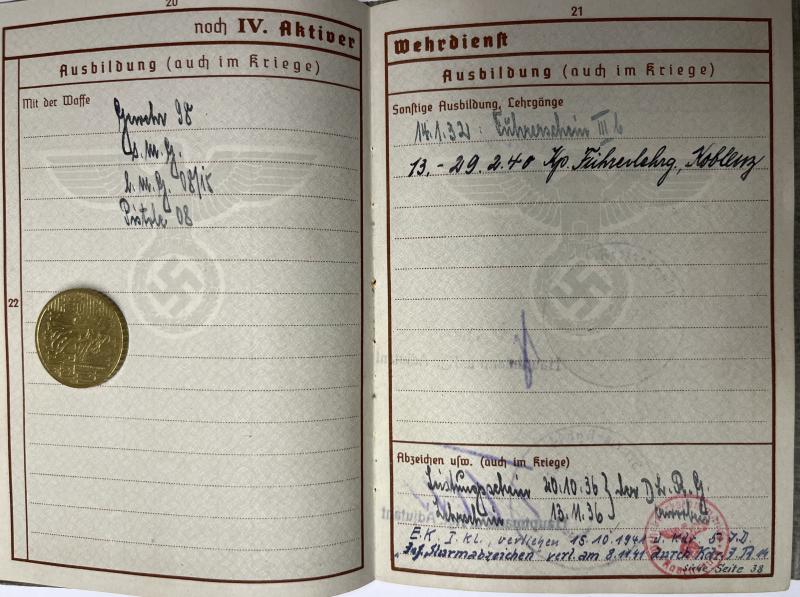 20
noch IV. Aktiver
Ausbildung (auch im Kriege)
Mit der Waffe
Gewehr 98
s.M.G.
l.M.G. 08/15
Pistole 08
22
21
Wehrdienst
Ausbildung (auch im Kriege)
Sonstige Ausbildung, Lehrgänge
14.1.32: Führerschein III b
13.-29.2.40 Kp. Führerlehrg., Koblenz
Abzeichen usw. (auch im Kriege)
Leistungsschein 20.10.36 } der D.L.R.G.
Lehrschein 13.11.36
E.K. I. Kl., verliehen 15.10.1941 d. Kdr. 5. I.D.
"Inf. Sturmabzeichen verl. am 8.1941 durch Kdr. I.R. 14
siehe Seite 38